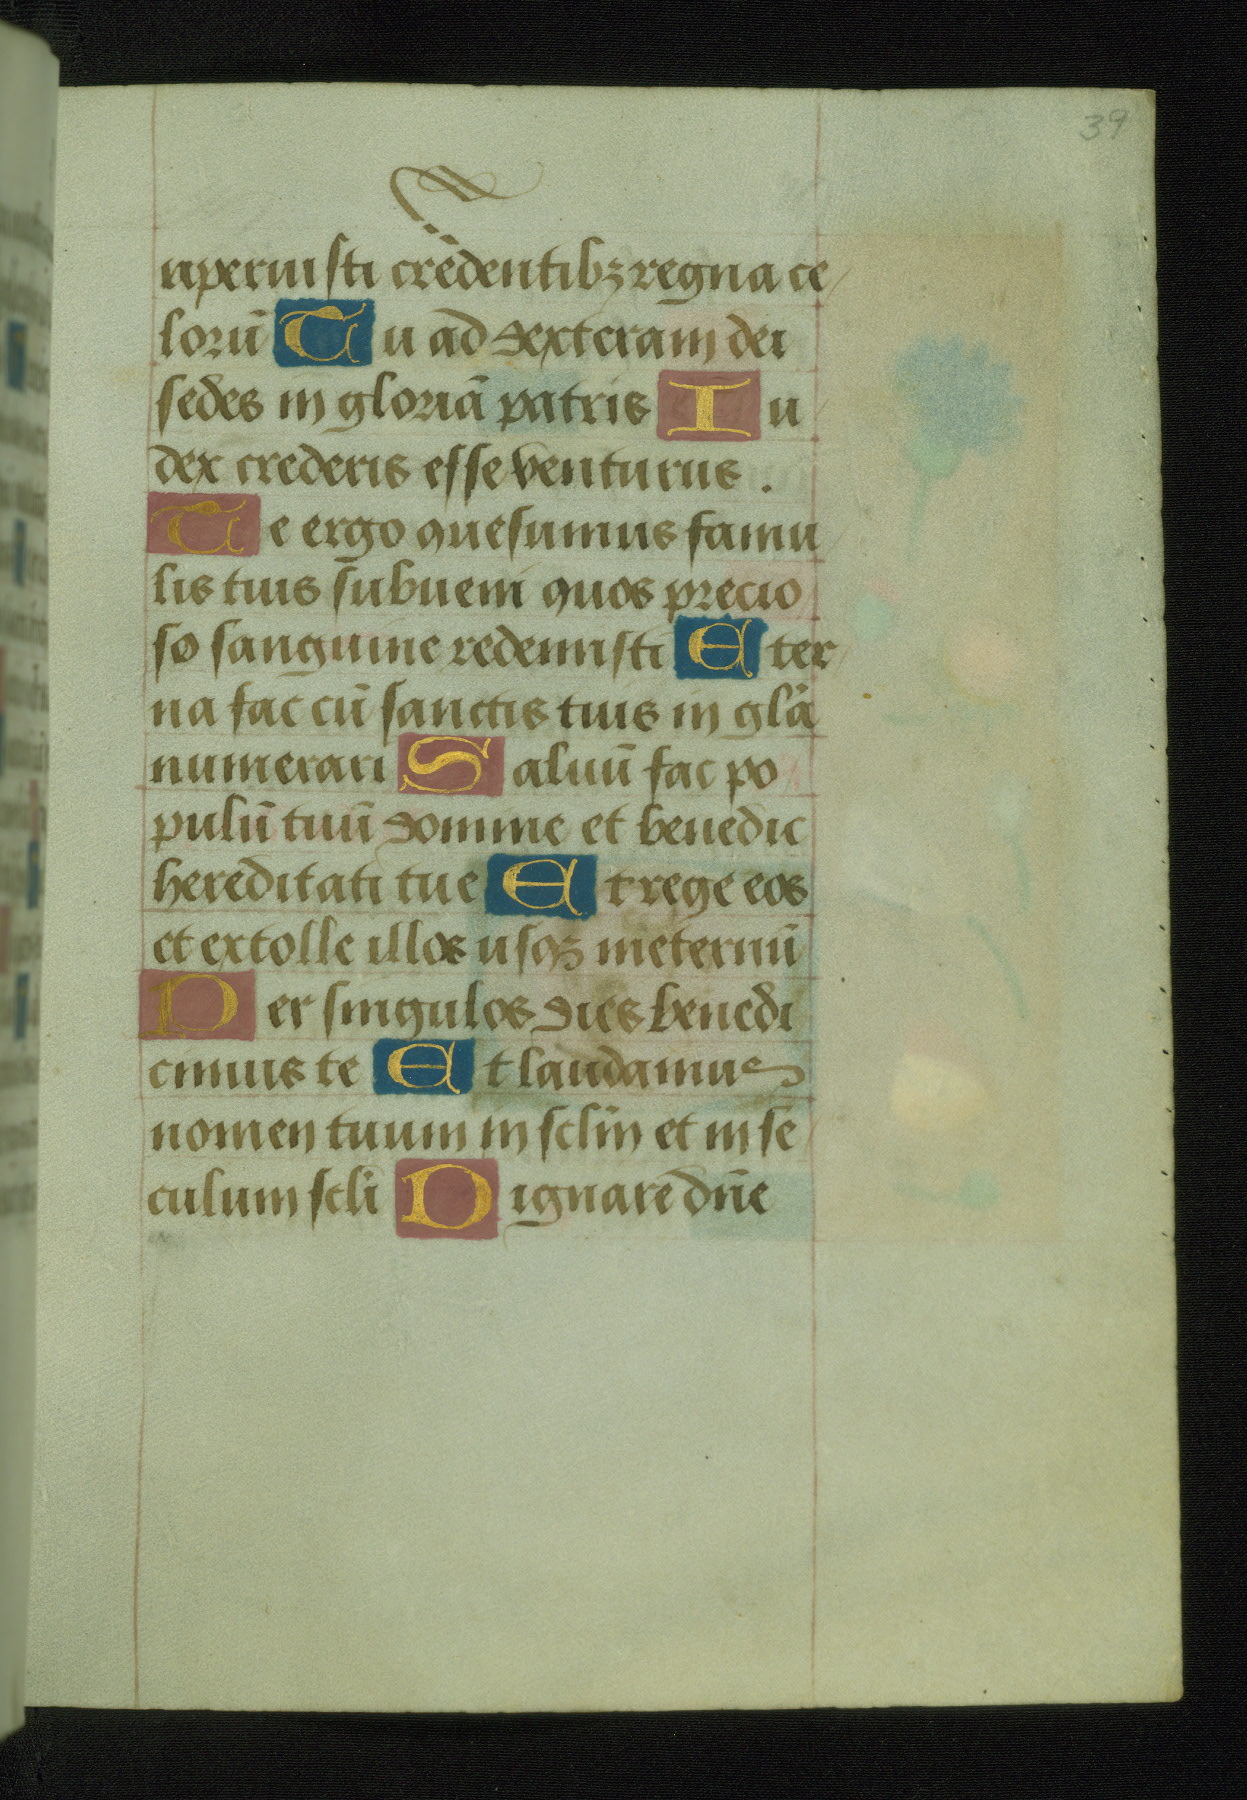 39
aperuisti credentibꝫ regna ce
lorū Tu ad dexteram dei
sedes in gloriā patris Iu
dex crederis esse venturus .
Te ergo quesumus famu
lis tuis subueni quos precio
so sanguine redemisti Eter
na fac cū sanctis tuis in glā
numerari Saluū fac po
pulū tuū domine et benedic
hereditati tue Et rege eos
et extolle illos usqꝫ ineternū
Per singulos dies benedi
cimus te Et laudamus
nomen tuum in sclm̄ et in se
culum scli̅ Dignare dn̄e